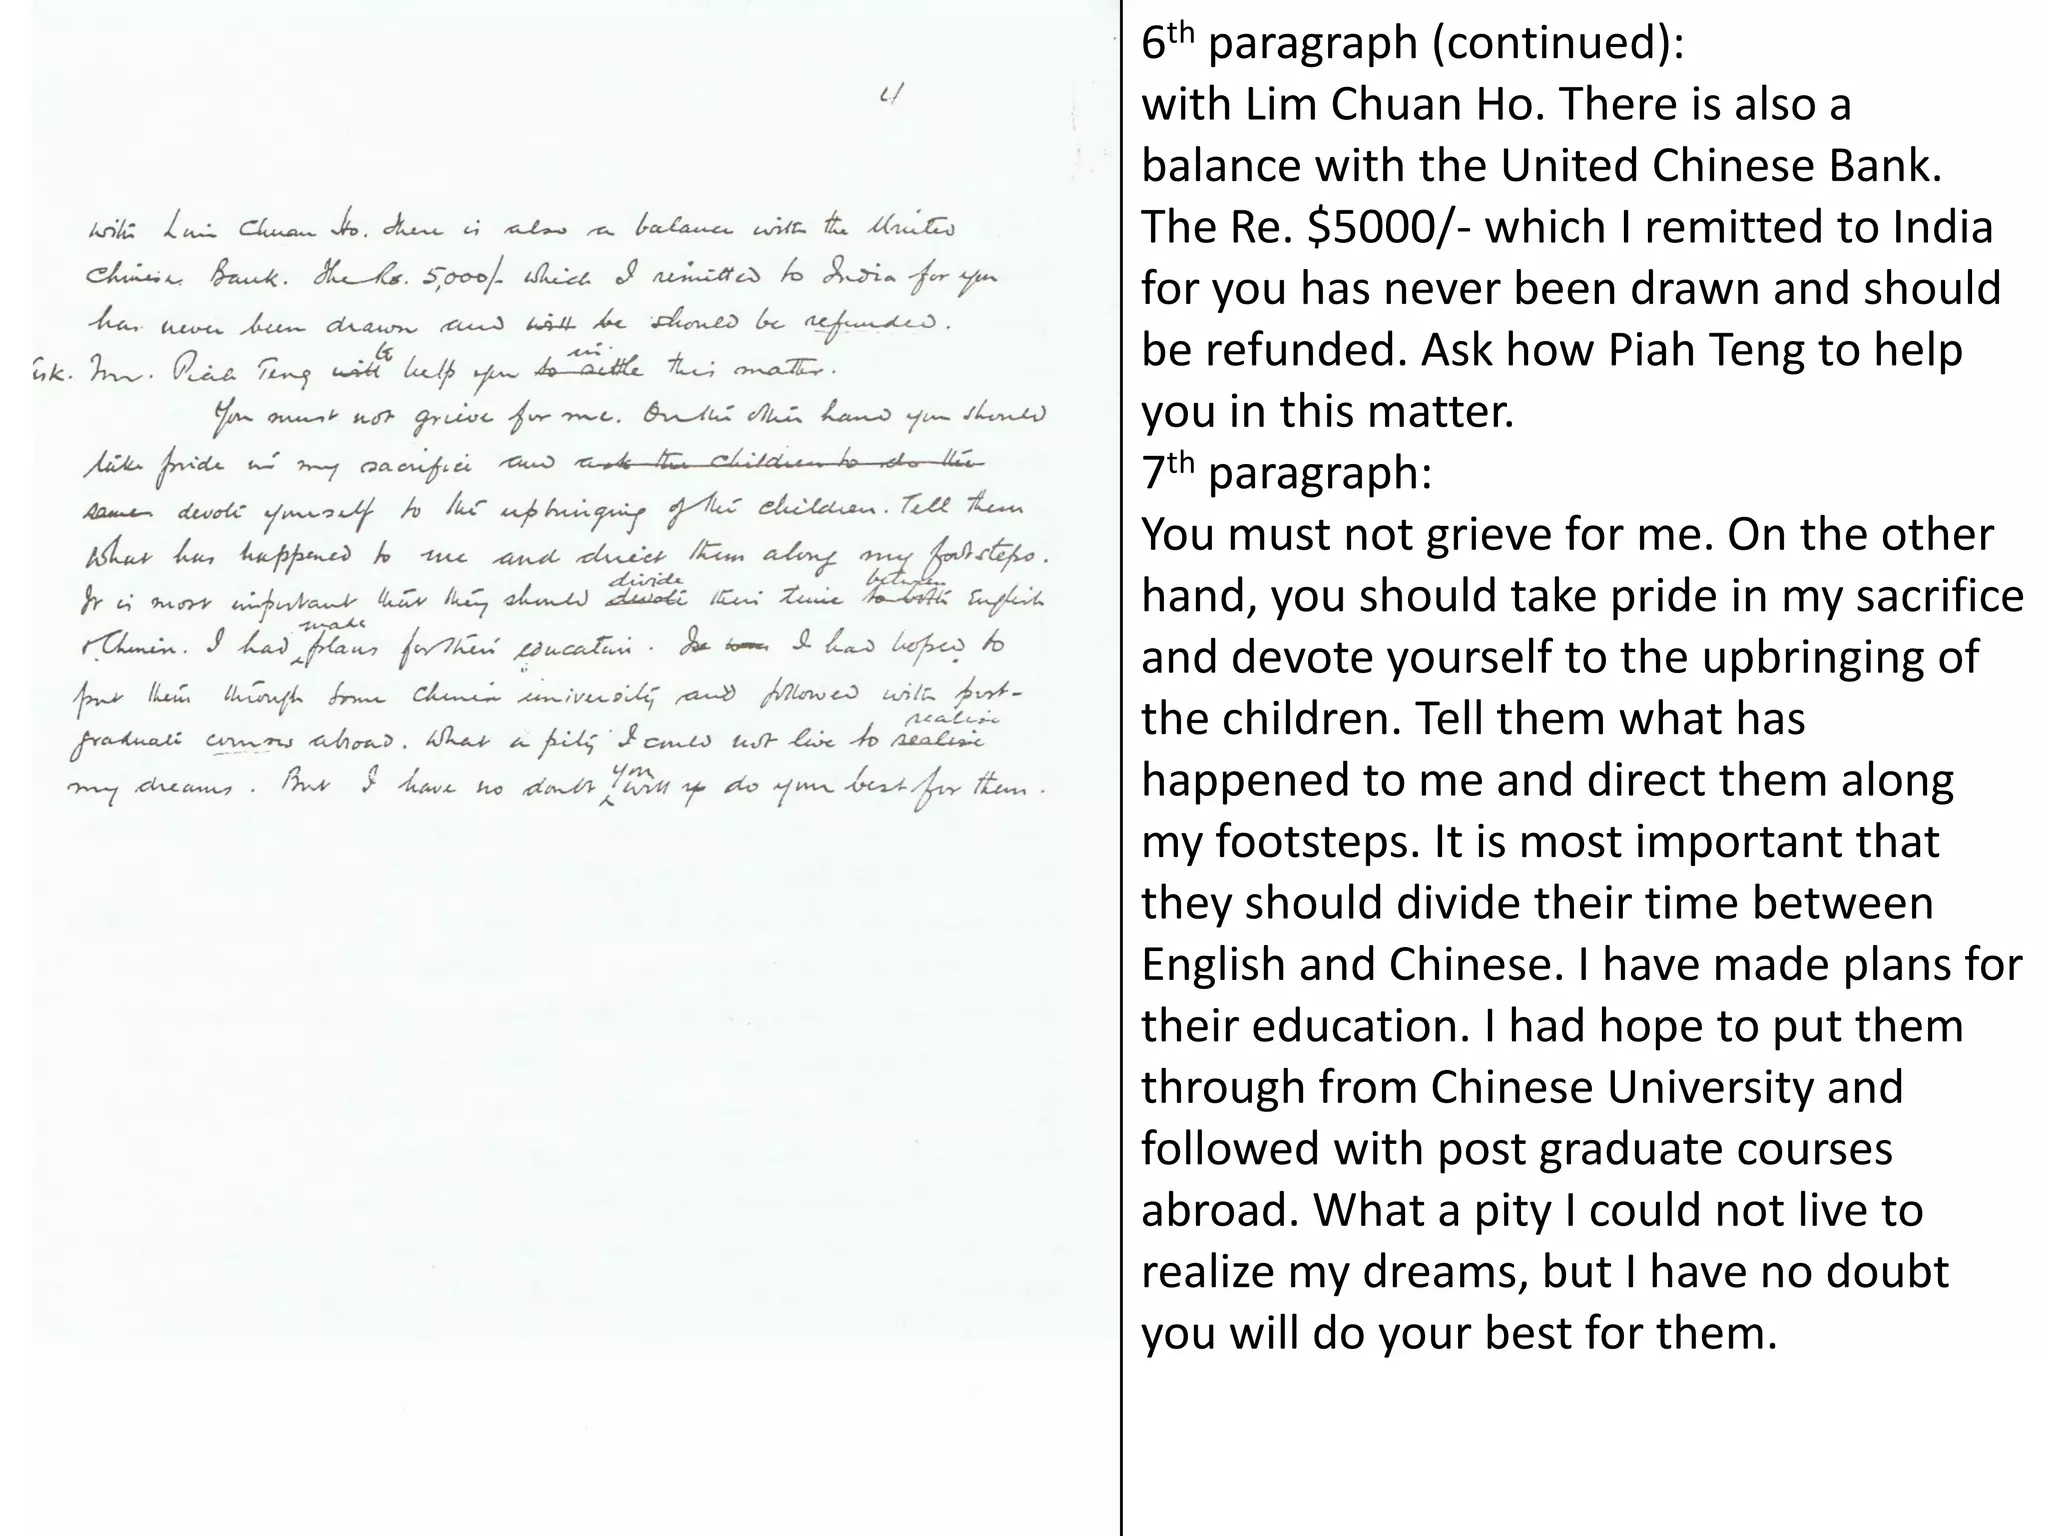 4
with Lim Chuan Ho. There is also a balance with the United
Chinese Bank. The Rs. 5,000/- which I remitted to India for you
has never been drawn and will be should be refunded.
Ask. Mr. Piah Teng will to help you to settle in this matter.
You must not grieve for me. On the other hand you should
take pride in my sacrifice and ask the children to do the
same devote yourself to the upbringing of the children. Tell them
what has happened to me and direct them along my footsteps.
It is most important that they should devote divide their time to both between English
& Chinese. I had made plans for their education. I had hoped to
put them through some Chinese university and followed with post-
graduate courses abroad. What a pity I could not live to realise realise
my dreams. But I have no doubt you will do your best for them.
6th paragraph (continued):
with Lim Chuan Ho. There is also a
balance with the United Chinese Bank.
The Re. $5000/- which I remitted to India
for you has never been drawn and should
be refunded. Ask how Piah Teng to help
you in this matter.
7th paragraph:
You must not grieve for me. On the other
hand, you should take pride in my sacrifice
and devote yourself to the upbringing of
the children. Tell them what has
happened to me and direct them along
my footsteps. It is most important that
they should divide their time between
English and Chinese. I have made plans for
their education. I had hope to put them
through from Chinese University and
followed with post graduate courses
abroad. What a pity I could not live to
realize my dreams, but I have no doubt
you will do your best for them.